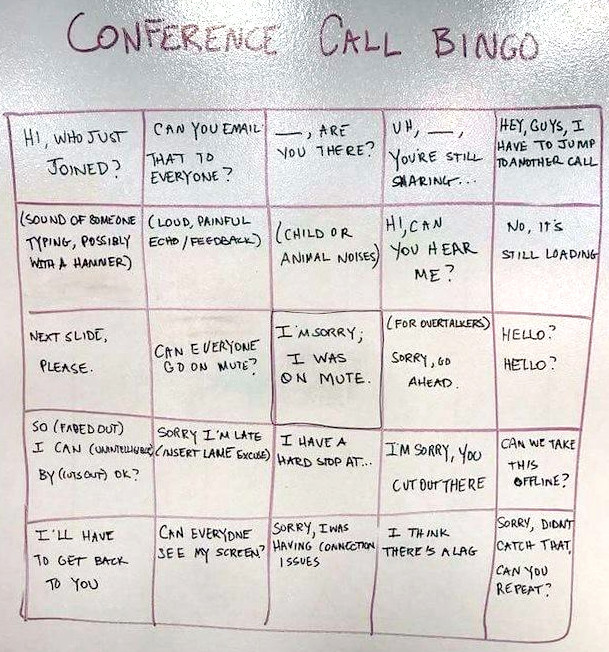 CONFERENCE CALL BINGO
HI, WHO JUST
JOINED?
CAN YOU EMAIL
THAT TO
EVERYONE?
___, ARE
YOU THERE?
UH, ___,
YOU'RE STILL
SHARING...
HEY, GUYS, I
HAVE TO JUMP
TO ANOTHER CALL
(SOUND OF SOMEONE
TYPING, POSSIBLY
WITH A HAMMER)
(LOUD, PAINFUL
ECHO/FEEDBACK)
(CHILD OR
ANIMAL NOISES)
HI, CAN
YOU HEAR
ME?
NO, IT'S
STILL LOADING
NEXT SLIDE,
PLEASE.
CAN EVERYONE
GO ON MUTE?
I'M SORRY;
I WAS
ON MUTE.
(FOR OVERTALKERS)
SORRY, GO
AHEAD.
HELLO?
HELLO?
SO (FADED OUT)
I CAN (UNINTELLIGIBLE)
BY (CUTS OUT) OK?
SORRY I'M LATE
(INSERT LAME EXCUSE)
I HAVE A
HARD STOP AT...
I'M SORRY, YOU
CUT OUT THERE
CAN WE TAKE
THIS
OFFLINE?
I'LL HAVE
TO GET BACK
TO YOU
CAN EVERYONE
SEE MY SCREEN?
SORRY, I WAS
HAVING CONNECTION
ISSUES
I THINK
THERE'S A LAG
SORRY, DIDN'T
CATCH THAT,
CAN YOU
REPEAT?